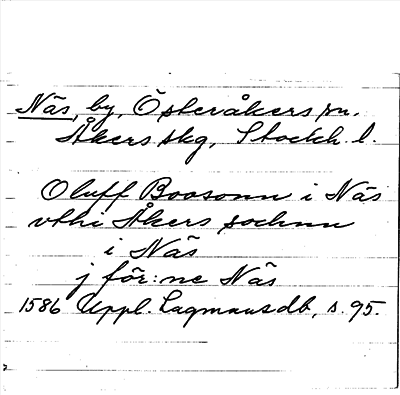 Näs, by, Österåkers sn.
Åkers skg, Stockh. l.
Oluff Boosonn i Näs
vthi Åkers sochnn
i Näs
j för:ne Näs
1586 Uppl. Lagmansdb, s. 95.